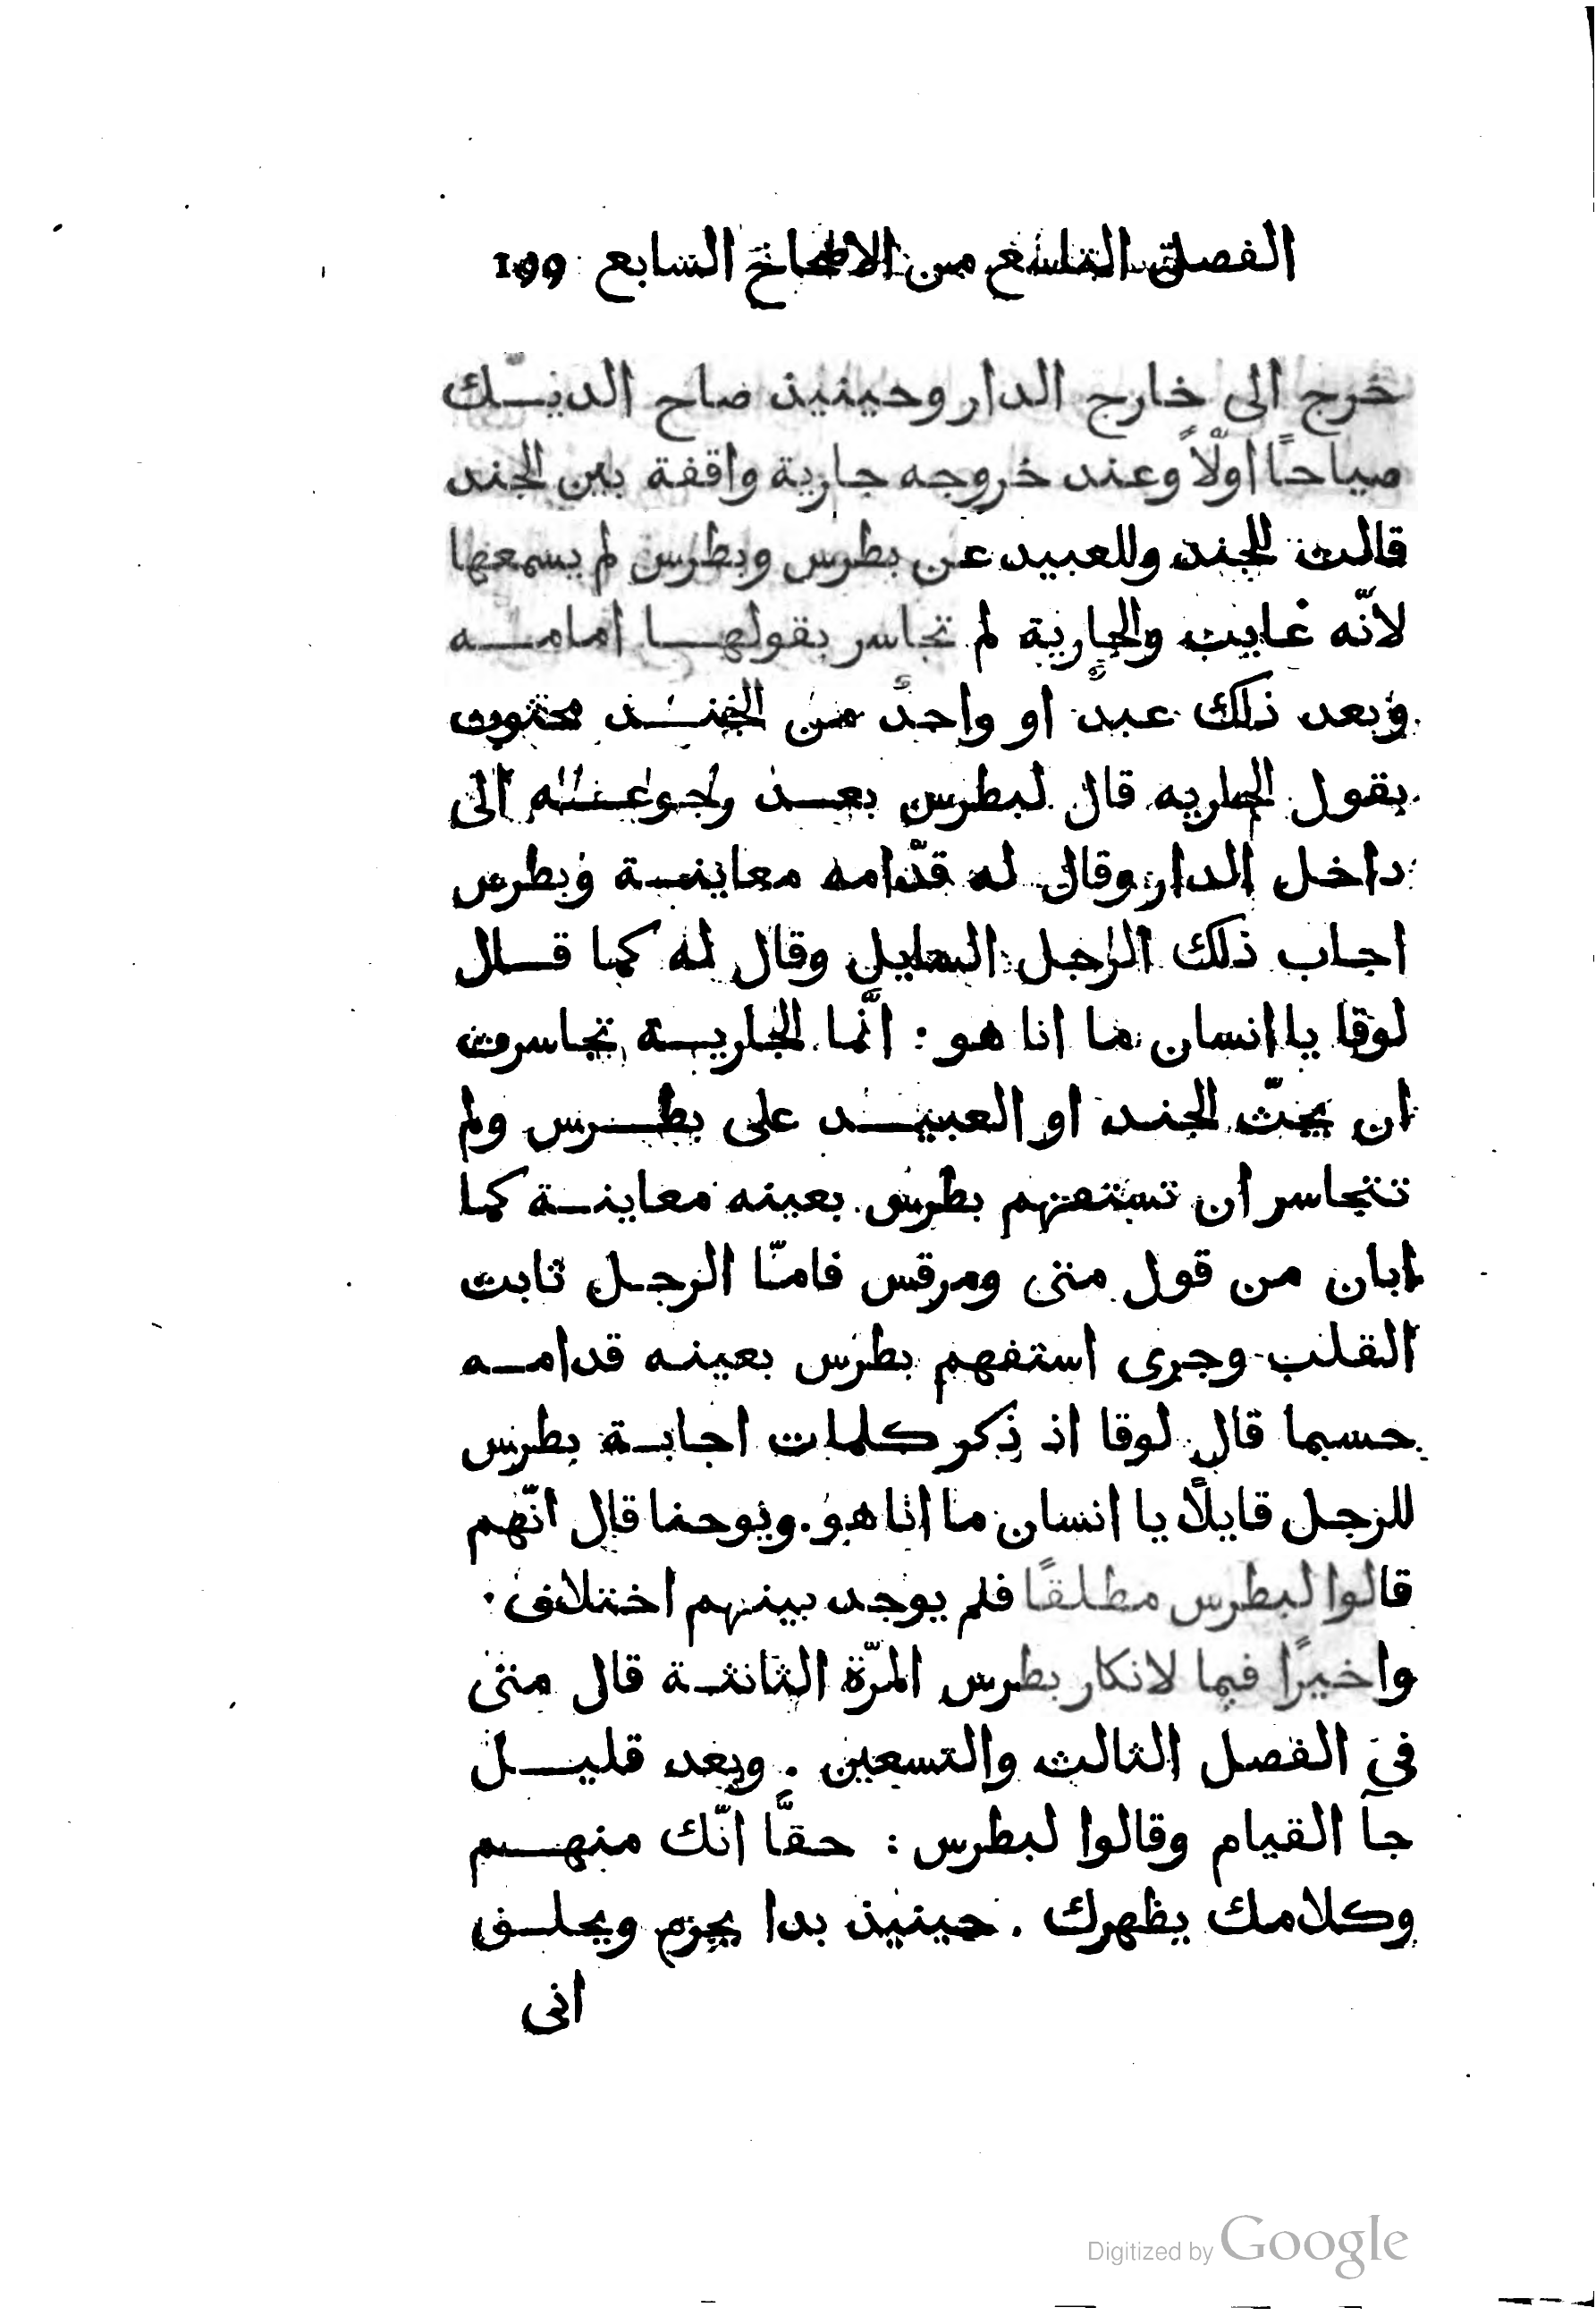 الفصل التاسع من الاصحاح السابع 199
خرج الى خارج الدار وحينيذ صاح الديـك
صياحًا اولًا وعند خروجه جارية واقفة بين الجند
قالت للجند وللعبيد عن بطرس وبطرس لم يسمعها
لانّه غايب والجارية لم تجاسر بقولهـا امامـه
وبعد ذلك عبدٌ او واحدٌ من الجنـد محثوث
بقول الجاريه قال لبطرس بعـد رجوعـه الى
داخل الدار وقال له قدّامه معاينـة وبطرس
اجاب ذلك الرجل السايل وقال له كما قـال
لوقا يا انسان ما انا هو : انّما الجاريـة تجاسرت
ان تحثّ الجند او العبيـد على بطـرس ولم
تتجاسر ان تستفهم بطرس بعينه معاينـة كما
ابان من قول متى ومرقس فامّا الرجل ثابت
القلب وجرى استفهم بطرس بعينه قدامـه
حسبما قال لوقا اذ ذكر كلمات اجابـة بطرس
للرجل قايلًا يا انسان ما انا هو . ويوحنا قال انّهم
قالوا لبطرس مطلقًا فلم يوجد بينهم اختلاف .
واخيرًا فيما لانكار بطرس المرّة الثالثـة قال متى
في الفصل الثالث والتسعين . وبعد قليـل
جآ القيام وقالوا لبطرس : حقًّا انّك منهـم
وكلامك يظهرك . حينيذ بدا يجزم ويحلـف
انى
Digitized by Google